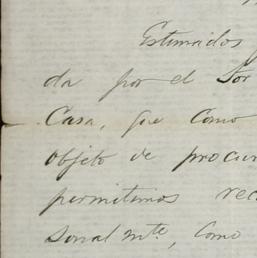 Estimados
da por el Sor
Casa, que como
objeto de procur
permitimos rec
sonalmte, como